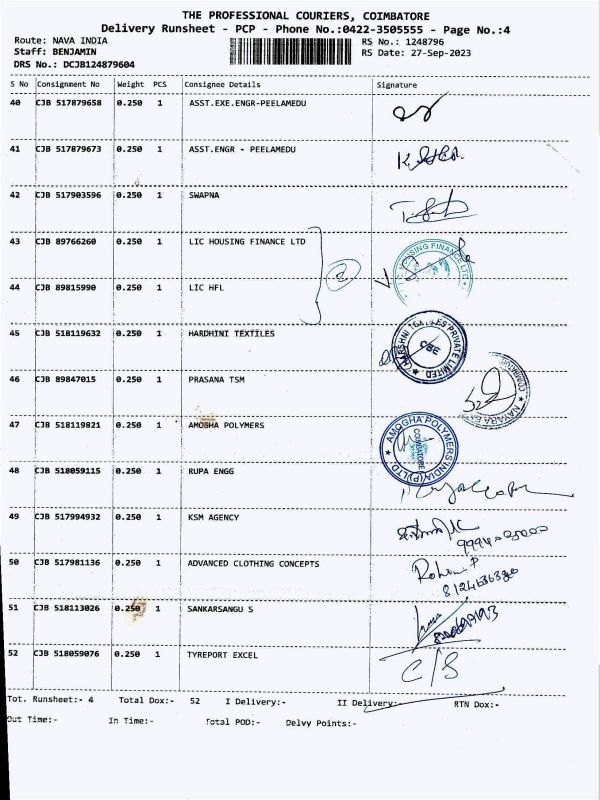 THE PROFESSIONAL COURIERS, COIMBATORE
Delivery Runsheet - PCP - Phone No.:0422-3505555 - Page No.:4
Route: NAVA INDIA RS No.: 1248796
Staff: BENJAMIN RS Date: 27-Sep-2023
DRS No.: DCJB124879604
S No Consignment No Weight PCS Consignee Details Signature
40 CJB 517879658 0.250 1 ASST.EXE.ENGR-PEELAMEDU
41 CJB 517879673 0.250 1 ASST.ENGR - PEELAMEDU
42 CJB 517903596 0.250 1 SWAPNA
43 CJB 89766260 0.250 1 LIC HOUSING FINANCE LTD
2
HOUSING FINANCE LTD
44 CJB 89815990 0.250 1 LIC HFL
45 CJB 518119632 0.250 1 HARDHINI TEXTILES
PRIVATE LIMITED
CBE
46 CJB 89847015 0.250 1 PRASANA TSM
NAYARA
47 CJB 518119821 0.250 1 AMOGHA POLYMERS
AMOGHA POLYMERS INDIA (P) LTD
COIMBATORE
48 CJB 518059115 0.250 1 RUPA ENGG
49 CJB 517994932 0.250 1 KSM AGENCY
50 CJB 517981136 0.250 1 ADVANCED CLOTHING CONCEPTS
51 CJB 518113026 0.250 1 SANKARSANGU S
52 CJB 518059076 0.250 1 TYREPORT EXCEL
C/S
Tot. Runsheet:- 4 Total Dox:- 52 I Delivery:- II Delivery:- RTN Dox:-
Out Time:- In Time:- Total POD:- Delvy Points:-